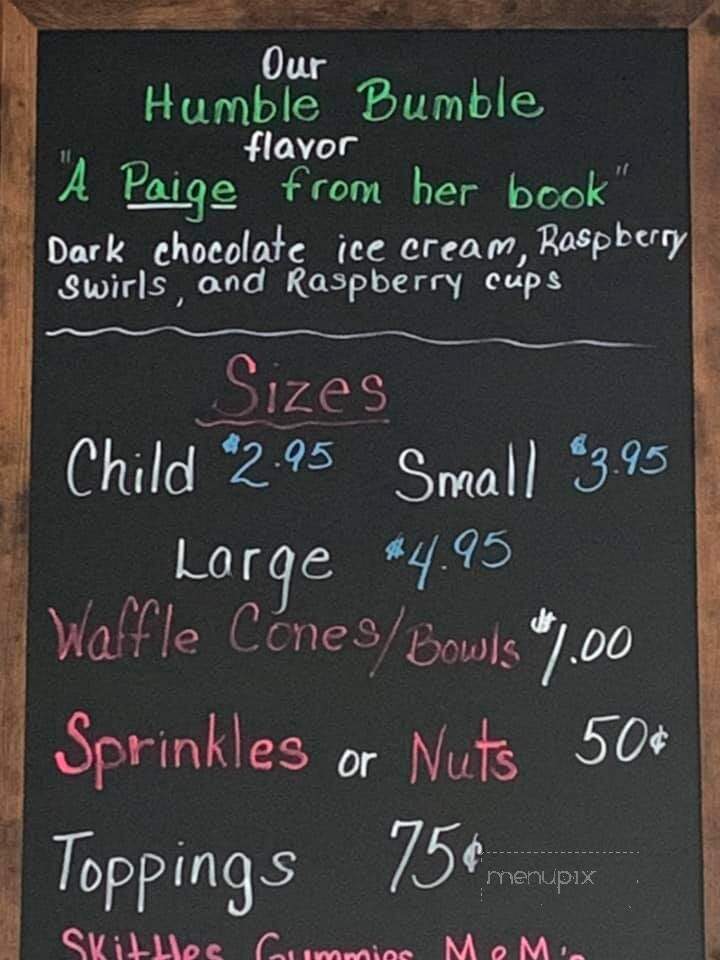 Our
Humble Bumble
flavor
"A Paige from her book"
Dark chocolate ice cream, Raspberry
swirls, and Raspberry cups
Sizes
Child $2.95 Small $3.95
Large $4.95
Waffle Cones/Bowls $1.00
Sprinkles or Nuts 50¢
Toppings 75¢
menupix
Skittles Gummies M&M's